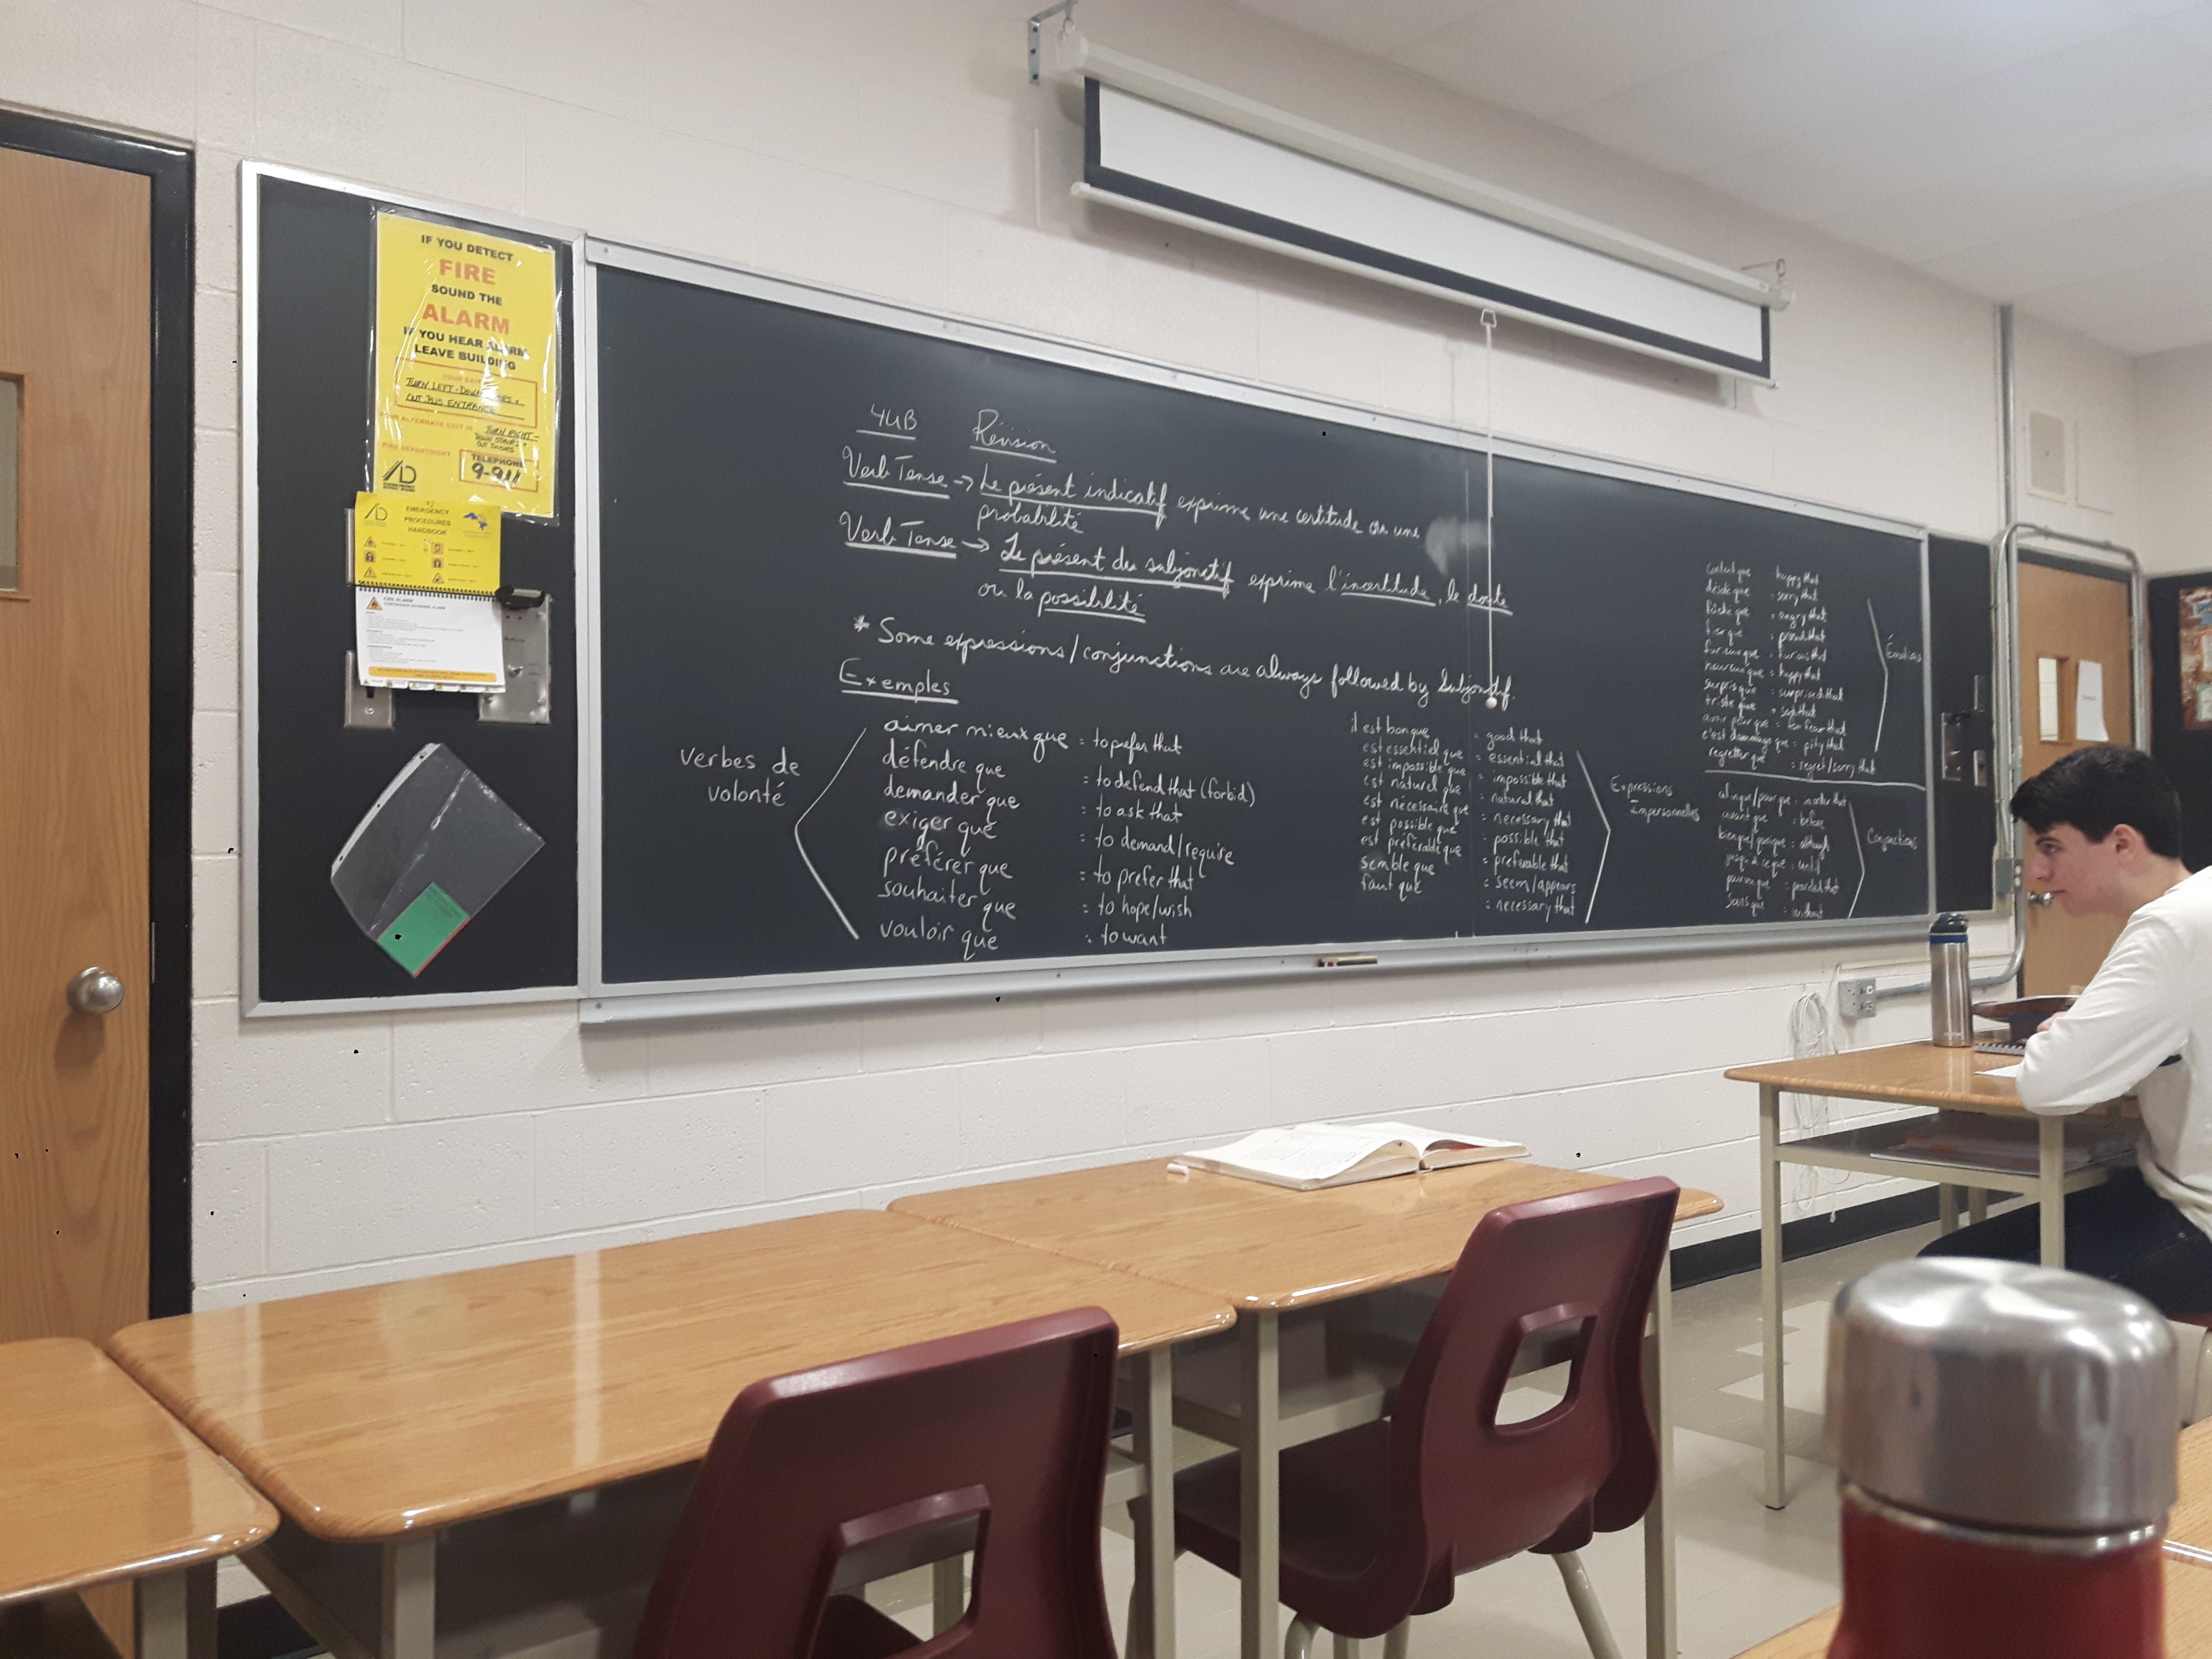 IF YOU DETECT
FIRE
SOUND THE
ALARM
IF YOU HEAR ALARM
LEAVE BUILDING
YOUR EXIT
TURN LEFT - DOWN STAIRS &
OUT BUS ENTRANCE
YOUR ALTERNATE EXIT IS TURN RIGHT -
DOWN STAIRS &
OUT DOORS
FIRE DEPARTMENT
TELEPHONE
9-911
EMERGENCY
PROCEDURES
HANDBOOK
FIRE ALARM
4UB Révision
Verb Tense → Le présent indicatif exprime une certitude ou une
probabilité
Verb Tense → Le présent du subjonctif exprime l'incertitude, le doute
ou la possibilité
* Some expressions/conjunctions are always followed by Subjonctif.
Exemples
verbes de
volonté
aimer mieux que = to prefer that
défendre que = to defend that (forbid)
demander que = to ask that
exiger que = to demand/require
préférer que = to prefer that
souhaiter que = to hope/wish
vouloir que = to want
il est bon que = good that
est essentiel que = essential that
est impossible que = impossible that
est naturel que = natural that
est nécessaire que = necessary that
est possible que = possible that
est préférable que = preferable that
semble que = seem/appears
faut que = necessary that
Expressions
Impersonnelles
content que = happy that
désolé que = sorry that
fâché que = angry that
fier que = proud that
furieux que = furious that
heureux que = happy that
surpris que = surprised that
triste que = sad that
avoir peur que = to fear that
c'est dommage que = pity that
regretter que = regret/sorry that
Émotions
afin que/pour que = in order that
avant que = before
bien que/quoique = although
jusqu'à ce que = until
pourvu que = provided that
sans que = without
Conjonctions